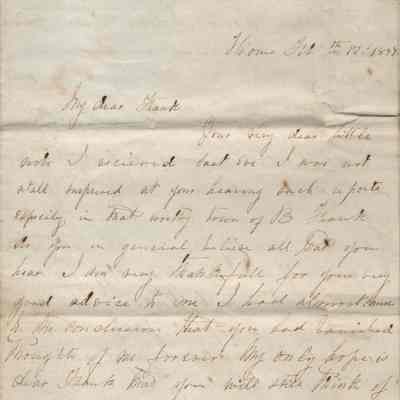 Home Feb th 12 1877
My dear Frank
Your very dear little
note I recieved last eve I was not
atall surprised at your hearing such reports
in that worthy town of B Frank
do you in general believe all that you
hear I am very thankfull for your very
good advice to me I had almost come
to the conclusion that you had banished
thoughts of me forever My only hope is
dear Frank that you will still think of